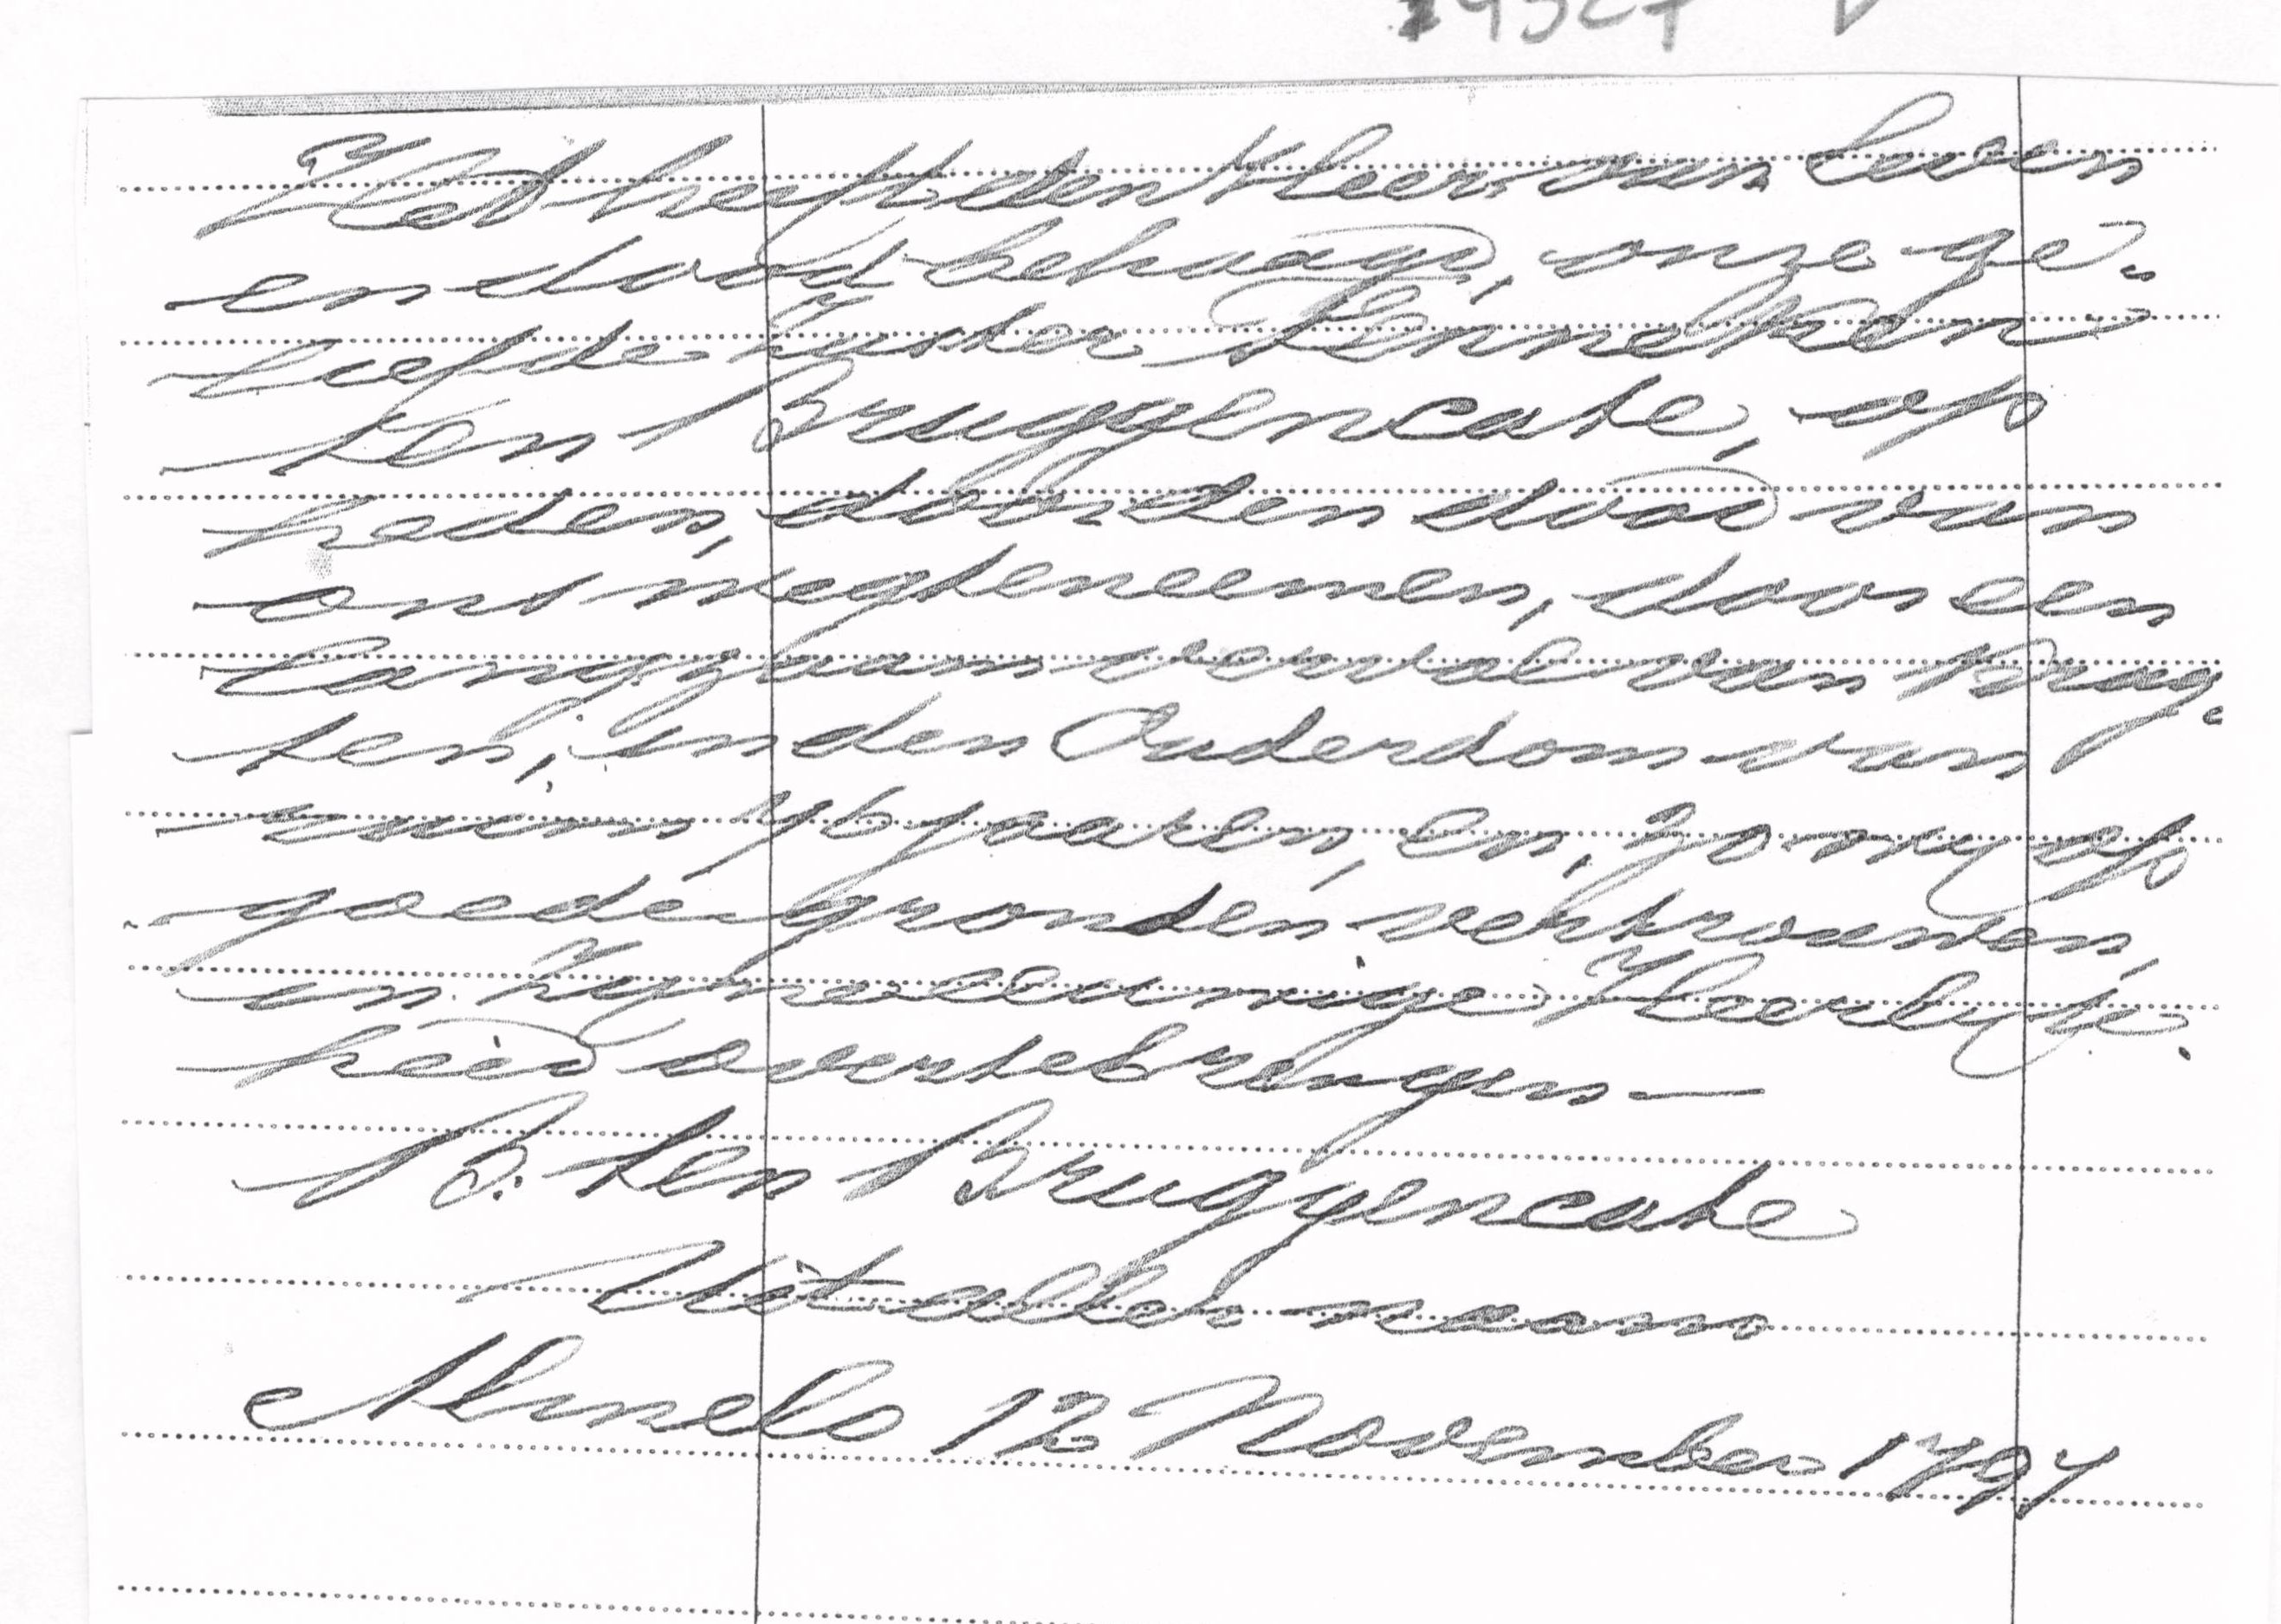 Het heeft den Heer van Leven
en dood behaagd, onze ge-
liefde Zuster Lenneken
ten Bruggencate, op
heden, door den dood van
ons wegteneemen, door een
langzaam verval van Krag-
ten, in den Ouderdom van
ruim 76 jaaren, en, zo wy op
goede gronden vertrouwen,
in zyne eeuwige Heerlyk-
heid overtebrengen —
B. ten Bruggencate
Uit aller naam
Almelo 12 November 1797